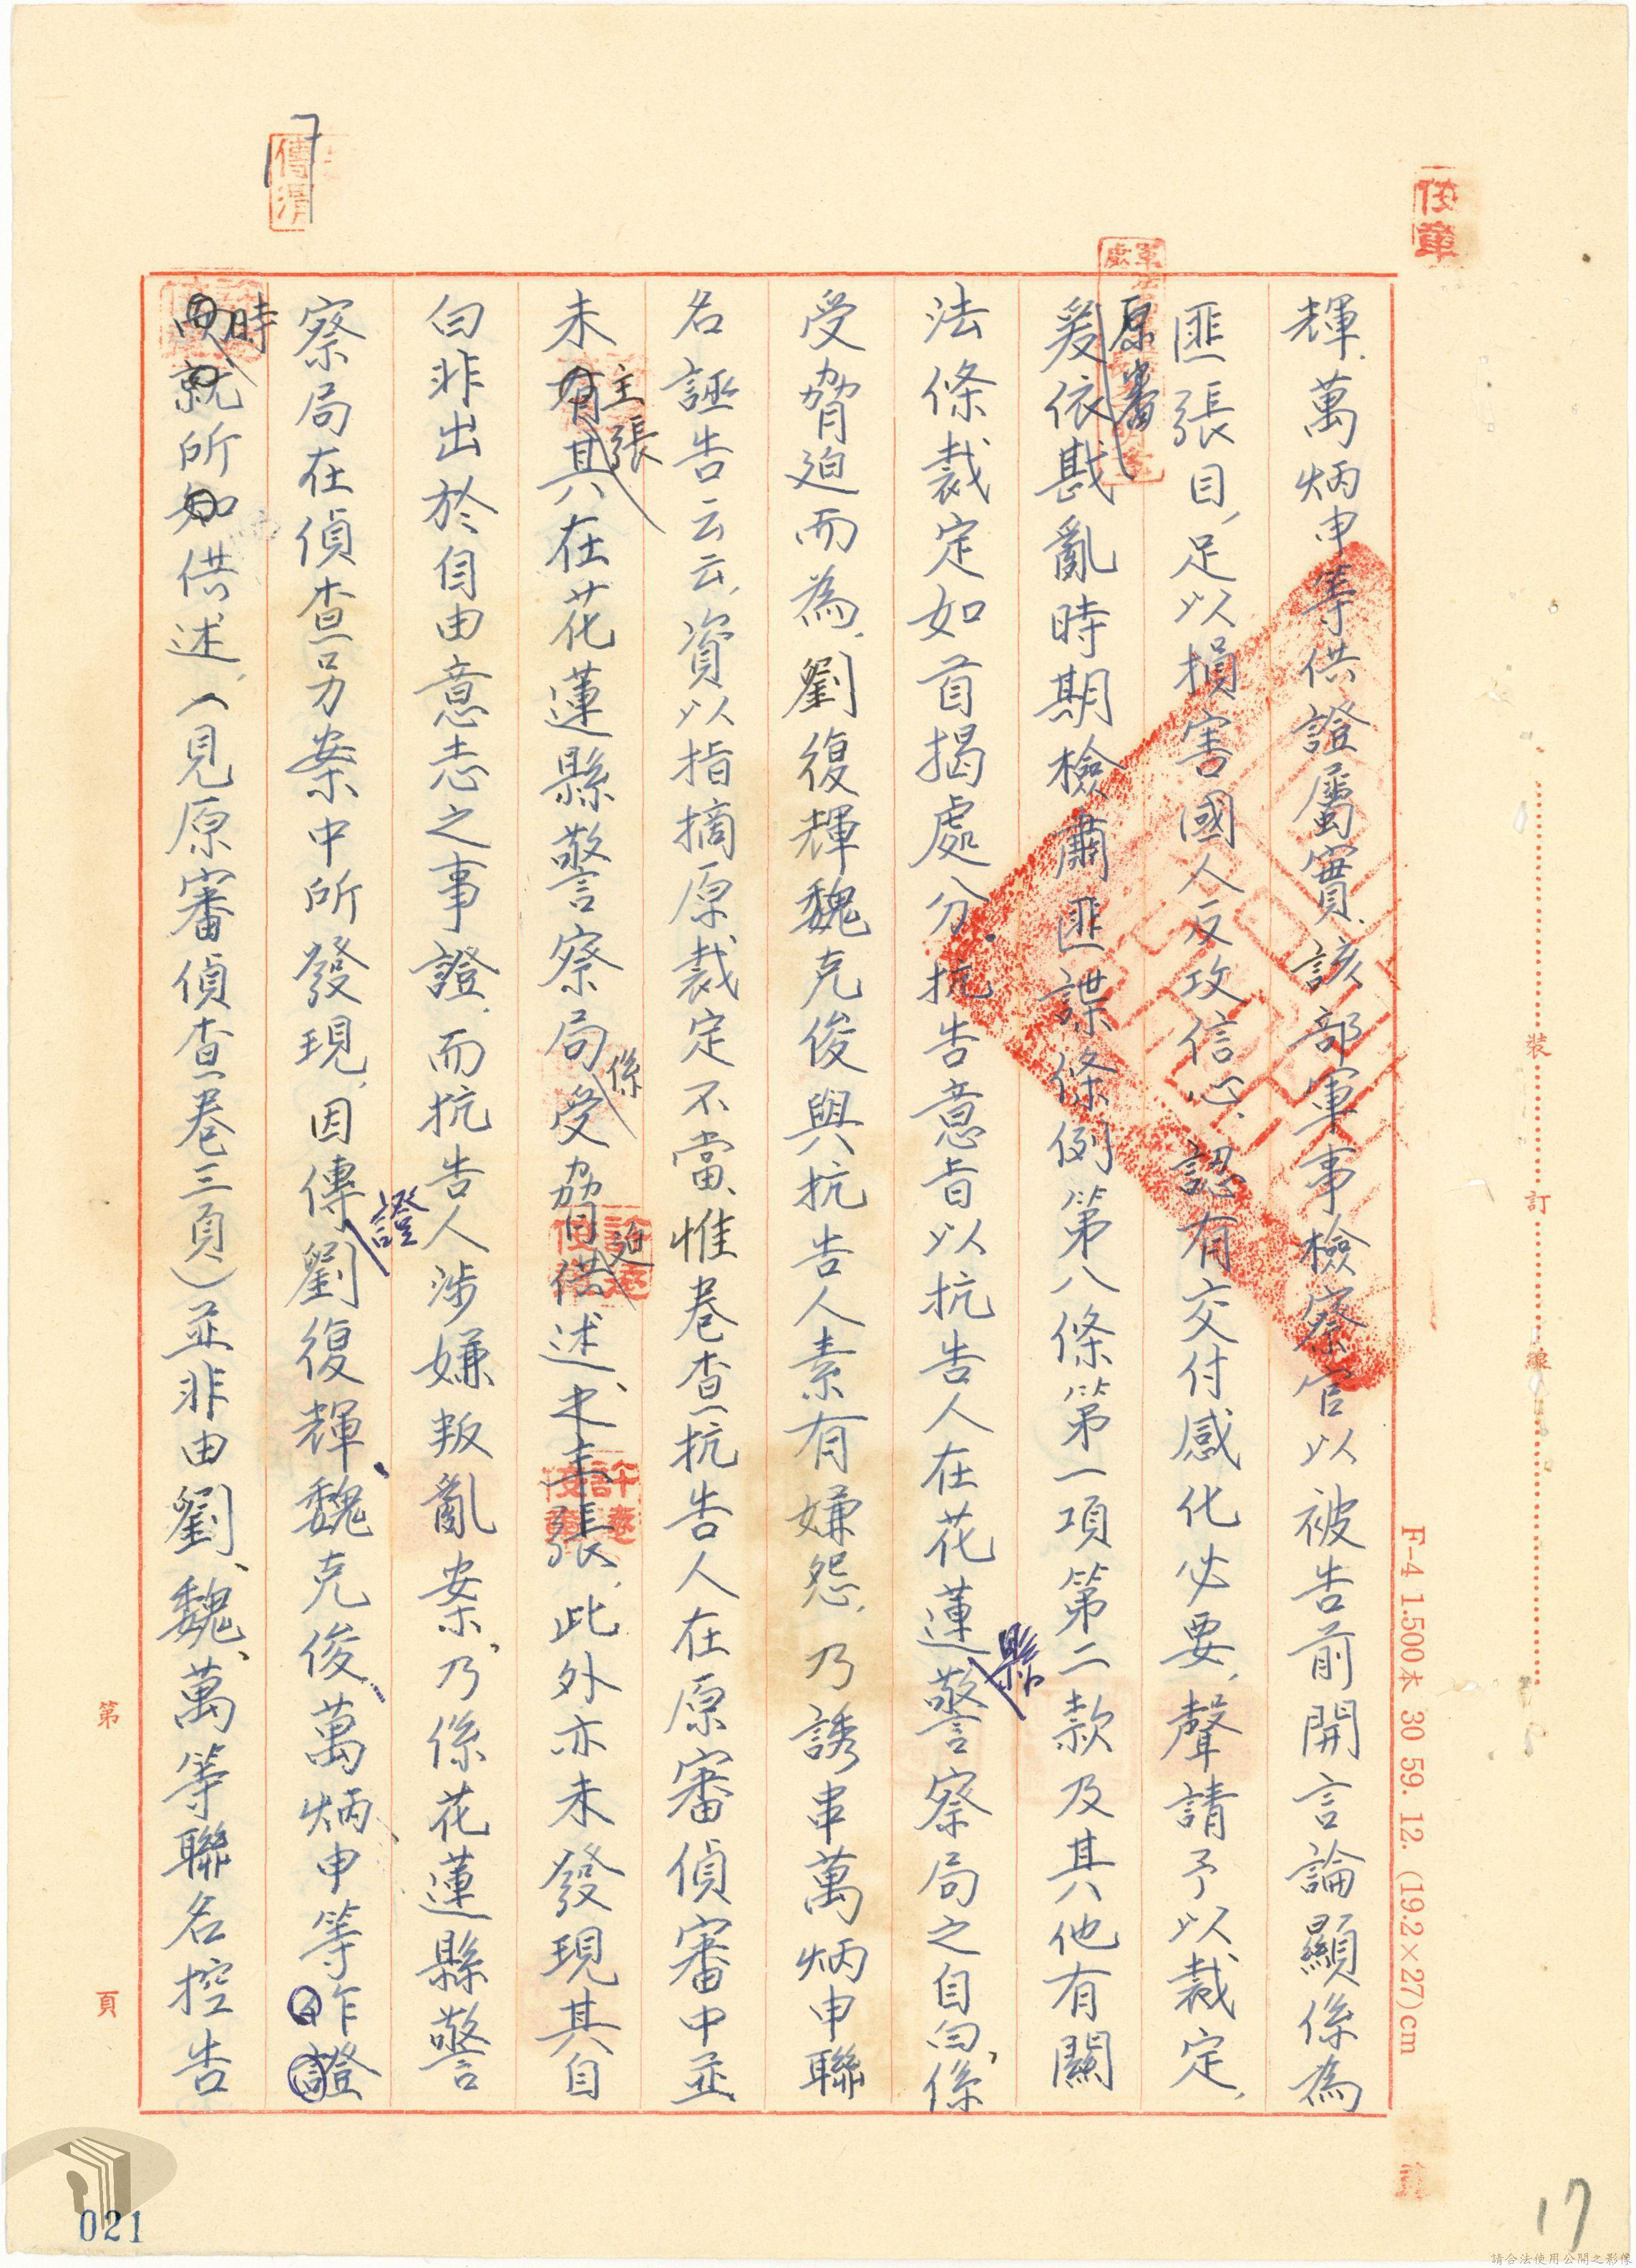 輝、萬炳申等供證屬實、該部軍事檢察官以被告前開言論顯係為
匪張目，足以損害國人反攻信心、認有交付感化必要，聲請予以裁定，
原審
爰依戡亂時期檢肅匪諜條例第八條第一項第二款及其他有關
法條裁定如首揭處分。抗告意旨以抗告人在花蓮縣警察局之自白、係
受脅迫而為、劉復輝魏克俊與抗告人素有嫌怨，乃誘串萬炳申聯
名誣告云云，資以指摘原裁定不當、惟卷查抗告人在原審偵審中並
未主張其在花蓮縣警察局係受脅迫供述、此外亦未發現其自
白非出於自由意志之事證，而抗告人涉嫌叛亂案，乃係花蓮縣警
察局在偵查另案中所發現，因傳證劉復輝、魏克俊、萬炳申等作證
時就所知供述，（見原審偵查卷三頁）並非由劉、魏、萬等聯名控告
裝
訂
線
F-4 1.500本 30 59. 12. (19.2×27)cm
第
頁
17
021
請合法使用公開之影像